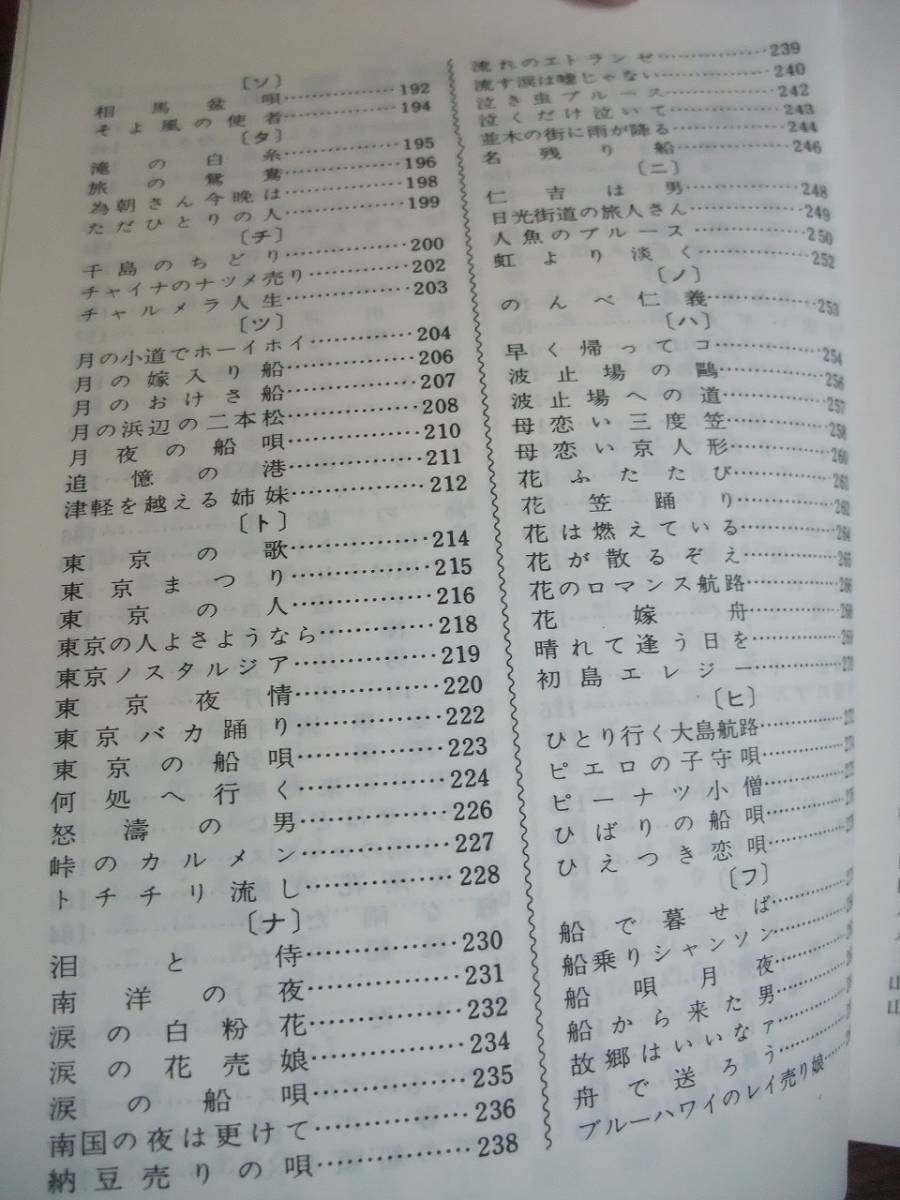 〔ソ〕
相馬盆唄……………192
そよ風の使者……………194
〔タ〕
滝の白糸……………195
旅の鴛鴦……………196
為朝さん今晩は……………198
ただひとりの人……………199
〔チ〕
千島のちどり……………200
チャイナのナツメ売り……………202
チャルメラ人生……………203
〔ツ〕
月の小道でホーイホイ……………204
月の嫁入り船……………206
月のおけさ船……………207
月の浜辺の二本松……………208
月夜の船唄……………210
追憶の港……………211
津軽を越える姉妹……………212
〔ト〕
東京の歌……………214
東京まつり……………215
東京の人……………216
東京の人よさようなら……………218
東京ノスタルジア……………219
東京夜情……………220
東京バカ踊り……………222
東京の船唄……………223
何処へ行く……………224
怒濤の男……………226
峠のカルメン……………227
トチチリ流し……………228
〔ナ〕
泪と侍……………230
南洋の夜……………231
涙の白粉花……………232
涙の花売娘……………234
涙の船唄……………235
南国の夜は更けて……………236
納豆売りの唄……………238
流れのエトランゼ……………239
流す涙は嘘じゃない……………240
泣き虫ブルース……………242
泣くだけ泣いて……………243
並木の街に雨が降る……………244
名残り船……………246
〔ニ〕
仁吉は男……………248
日光街道の旅人さん……………249
人魚のブルース……………250
虹より淡く……………252
〔ノ〕
のんべ仁義……………253
〔ハ〕
早く帰ってコ……………254
波止場の鷗……………256
波止場への道……………257
母恋い三度笠……………258
母恋い京人形……………260
花ふたたび……………261
花笠踊り……………262
花は燃えている……………264
花が散るぞえ……………265
花のロマンス航路……………266
花嫁舟……………268
晴れて逢う日を……………269
初島エレジー……………270
〔ヒ〕
ひとり行く大島航路……………
ピエロの子守唄……………
ピーナツ小僧……………
ひばりの船唄……………
ひえつき恋唄……………
〔フ〕
船で暮せば……………
船乗りシャンソン……………
船唄月夜……………
船から来た男……………
故郷はいいなァ……………
舟で送ろう……………
ブルーハワイのレイ売り娘……